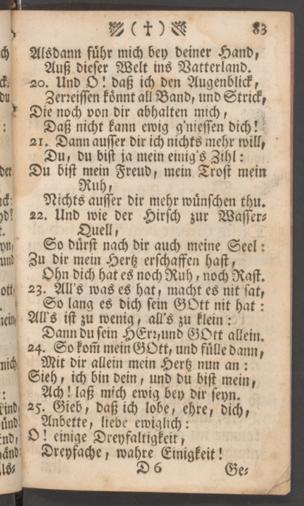 ( † ) 83
Alsdann führ mich bey deiner Hand,
Auß dieser Welt ins Vatterland.
20. Und O! daß ich den Augenblick,
Zerreissen könnt all Band, und Strick,
Die noch von dir abhalten mich,
Daß nicht kann ewig g'niessen dich!
21. Dann ausser dir ich nichts mehr will,
Du, du bist ja mein einig's Zihl:
Du bist mein Freud, mein Trost mein
Ruh,
Nichts ausser dir mehr wünschen thu.
22. Und wie der Hirsch zur Wasser-
Quell,
So dürst nach dir auch meine Seel:
Zu dir mein Hertz erschaffen hast,
Ohn dich hat es noch Ruh, noch Rast.
23. All's was es hat, macht es nit sat,
So lang es dich sein GOtt nit hat:
All's ist zu wenig, all's zu klein:
Dann du sein HErr, und GOtt allein.
24. So kom̄ mein GOtt, und fülle dann,
Mit dir allein mein Hertz nun an:
Sieh, ich bin dein, und du bist mein,
Ach! laß mich ewig bey dir seyn.
25. Gieb, daß ich lobe, ehre, dich,
Anbette, liebe ewiglich:
O! einige Dreyfaltigkeit,
Dreyfache, wahre Einigkeit!
D 6 Ge-